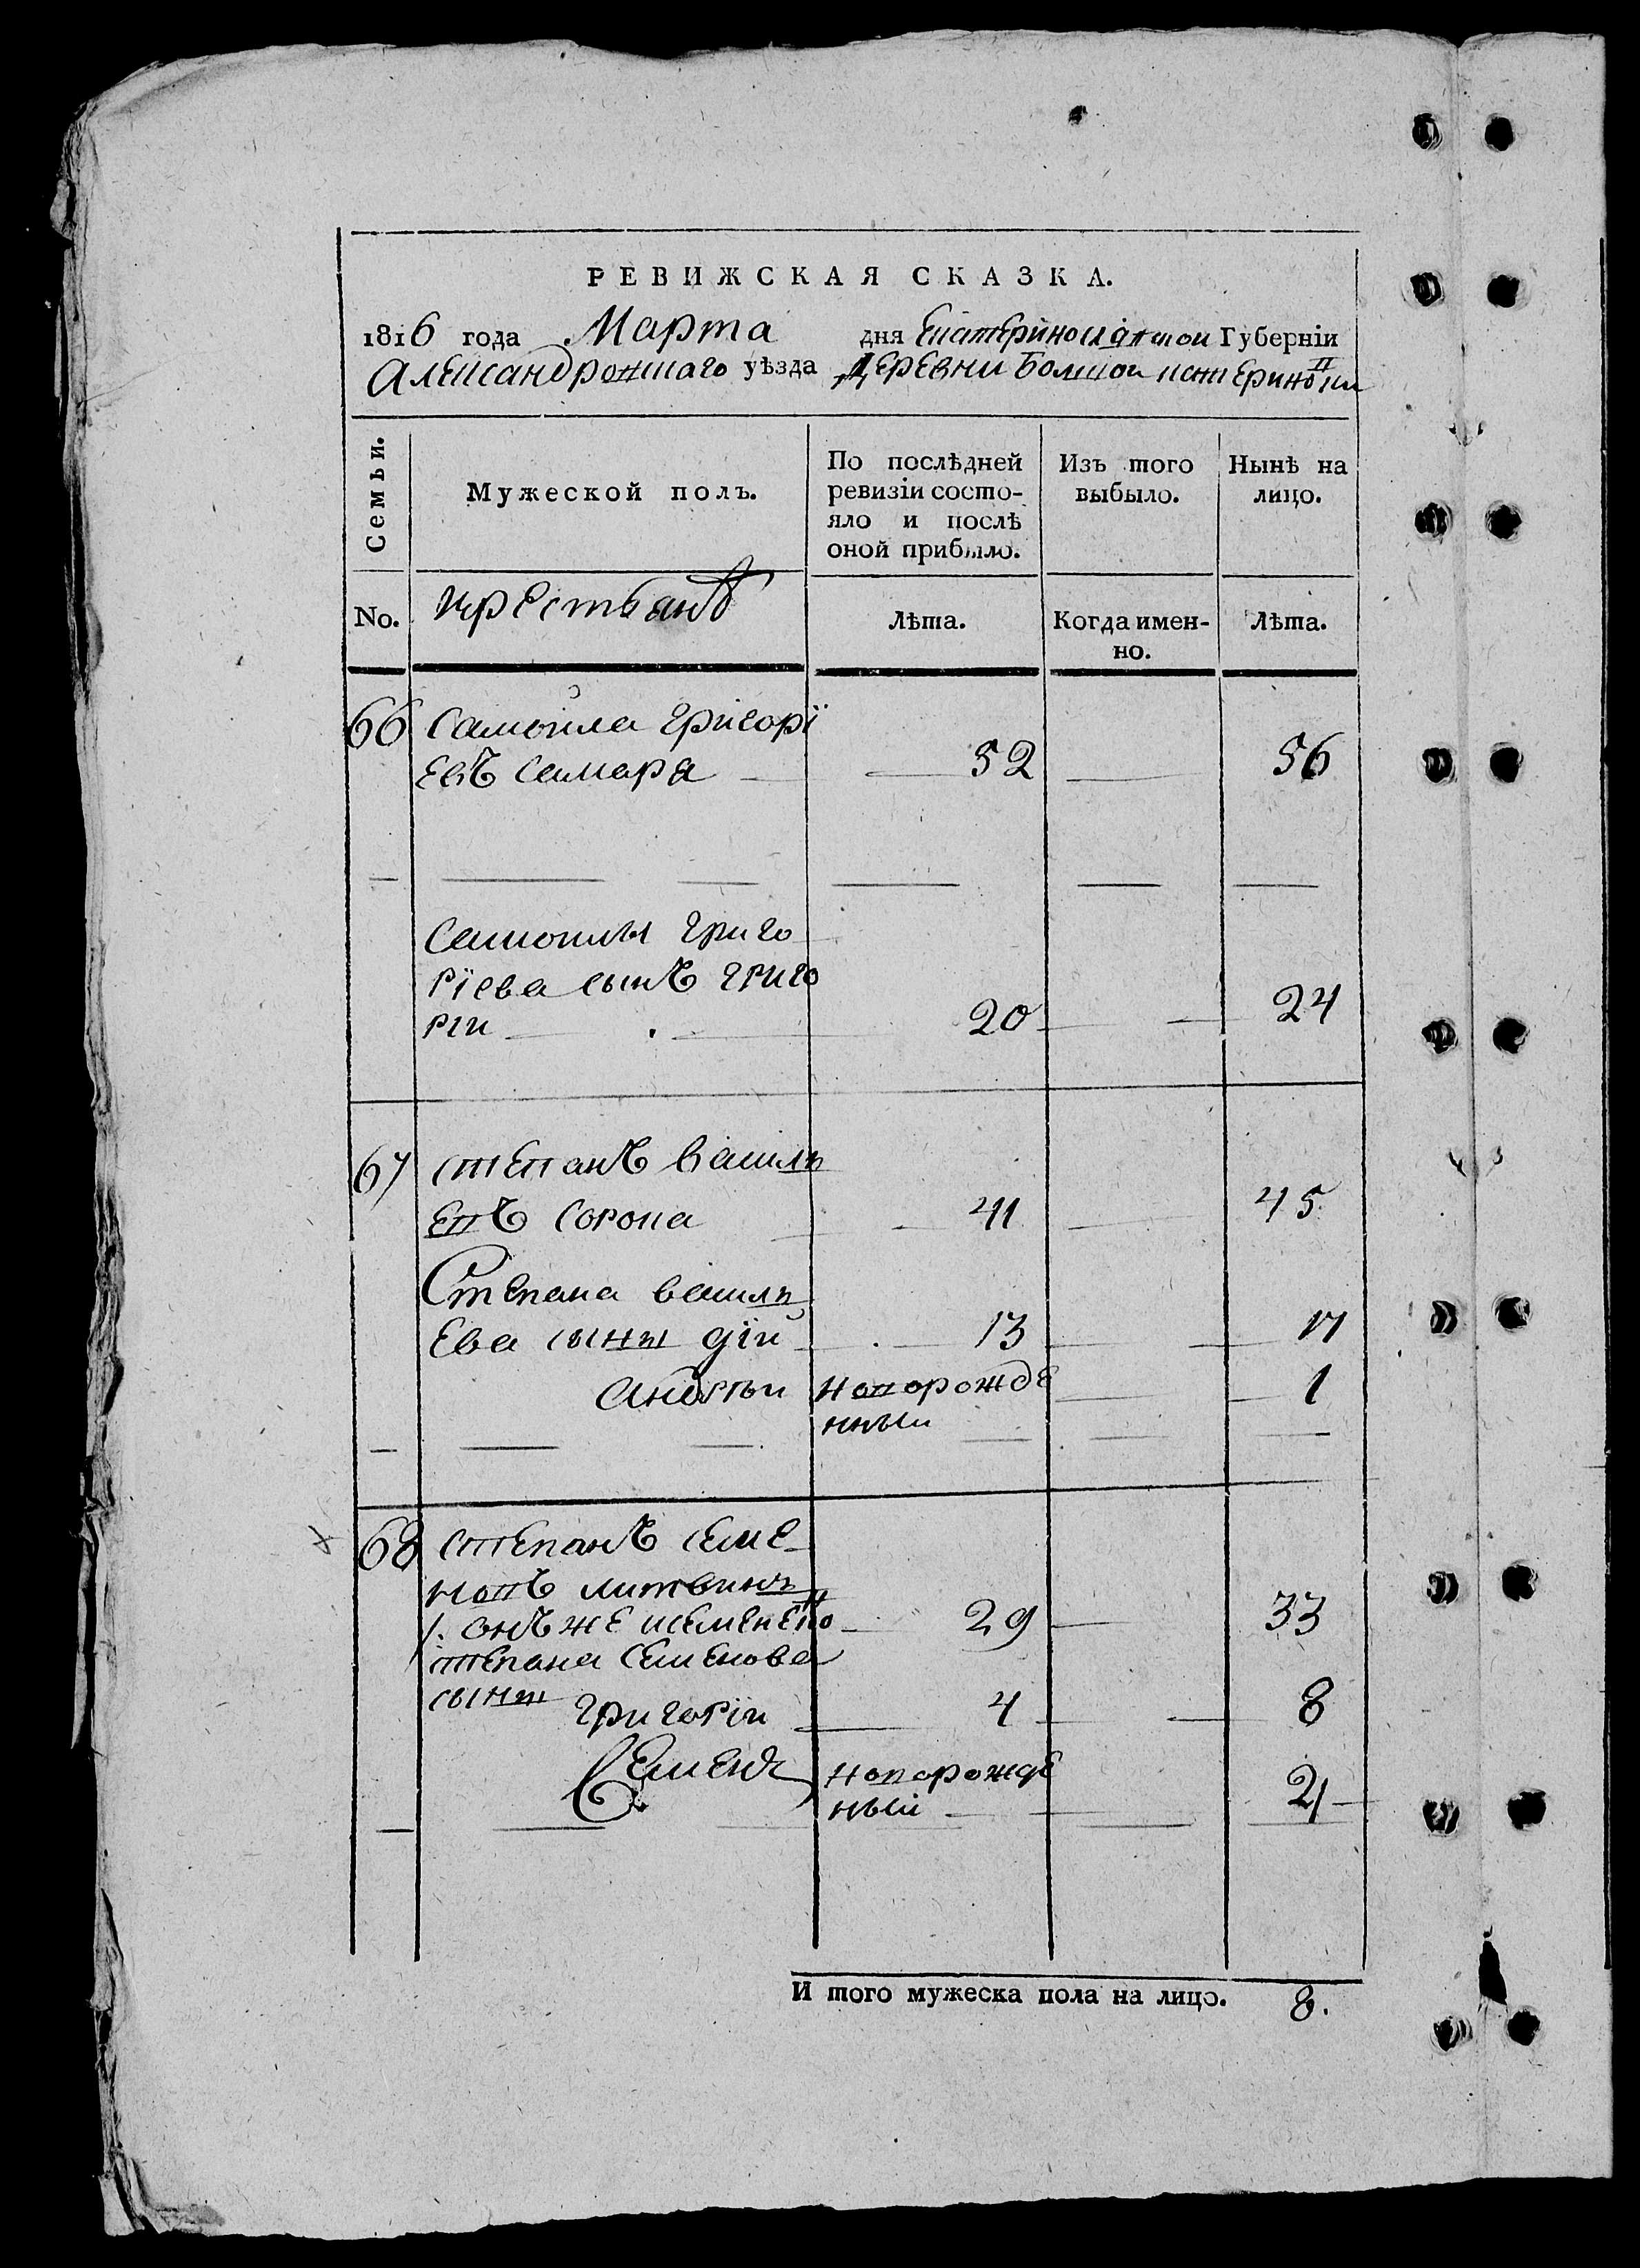 РЕВИЖСКАЯ СКАЗКА.
1816 года Марта дня Екатеринославской Губерніи
Александровскаго уѣзда Деревни Большой Катериновки
Семьи.
Мужеской полъ.
По послѣдней
ревизіи состо-
яло и послѣ
оной прибыло.
Изъ того
выбыло.
Нынѣ на
лицо.
No.
крестьянъ
Лѣта.
Когда имен-
но.
Лѣта.
66 Самойла Григорї
евъ Самара 52 56
Самойлы Григо
рїева сынъ Григо
рій 20 24
67 степанъ василь
евъ Сорока 41 45
Степана василь
Ева сынъ 13 17
Андреи новорожде
нныи 1
68 степанъ семе
новъ литвинъ
онъ же 29 33
степана Семенова
сынъ Григоріи 4 8
Семенъ новорожде
ныи 2
И того мужеска пола на лицо. 8.